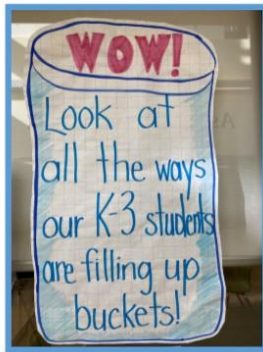 WOW!
Look at
all the ways
our K-3 students
are filling up
buckets!